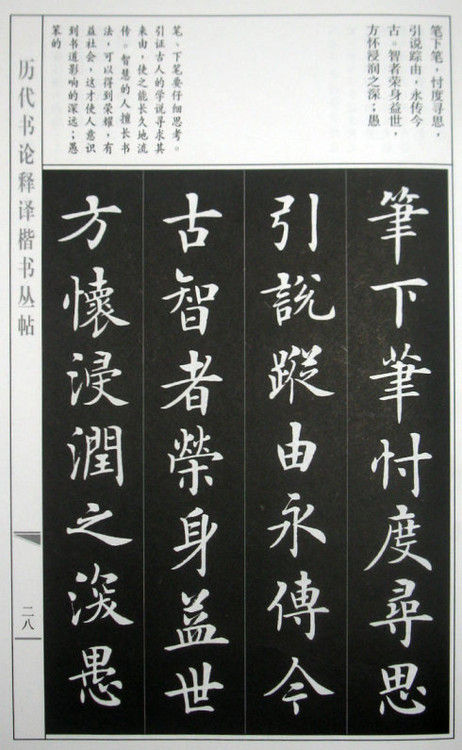 笔下笔，忖度寻思，
引说踪由，永传今
古。智者荣身益世，
方怀浸润之深；愚
笔、下笔要仔细思考。
引证古人的学说寻求其
来由，使之能长久地流
传。智慧的人擅长书
法，可以得到荣耀，有
益社会，这才使人意识
到书道影响的深远；愚
笨的
筆下筆忖度尋思
引說蹤由永傳今
古智者榮身益世
方懷浸潤之深愚
历代书论释译楷书丛帖
二八